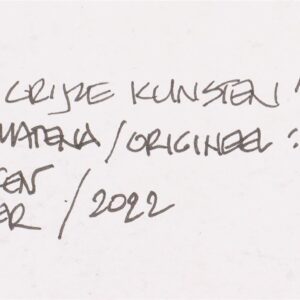 GRIJZE KUNSTEN
MATENA/ORIGINEEL?
/2022